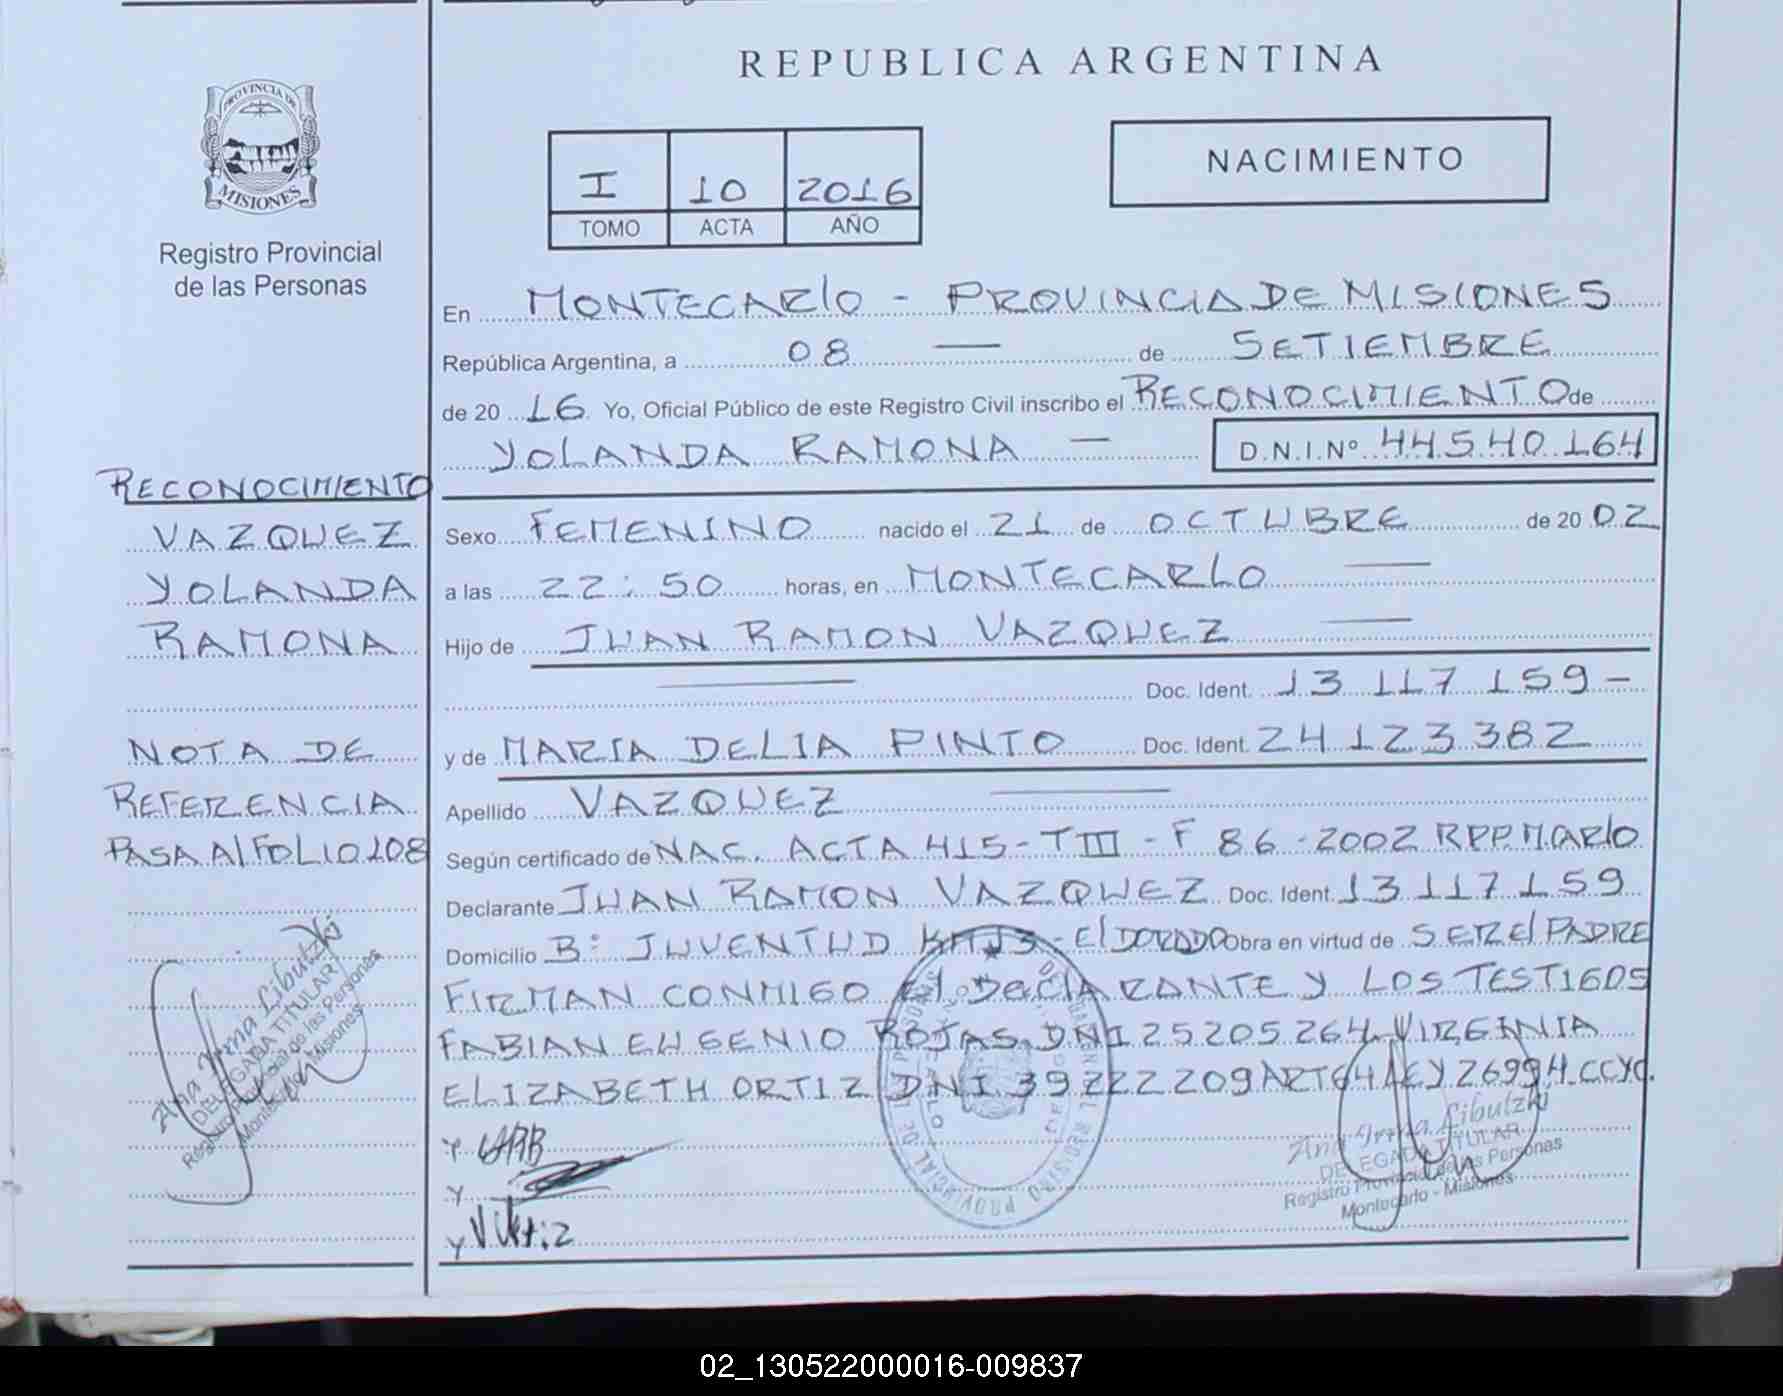 REPUBLICA ARGENTINA
PROVINCIA DE
MISIONES
Registro Provincial
de las Personas
NACIMIENTO
I 10 2016
TOMO ACTA AÑO
En MONTECARlO - PROVINCIA DE MISIONES
República Argentina, a 08 — de SETIEMBRE
de 20 16 Yo, Oficial Público de este Registro Civil inscribo el RECONOCIMIENTO de
YOLANDA RAMONA — D.N.I.Nº 44540164
RECONOCIMIENTO
VAZQUEZ
YOLANDA
RAMONA
NOTA DE
REFERENCIA
PASA Al FOLIO 108
Ana Irma Libutzki
DELEGADA TITULAR
Registro Provincial de las Personas
Montecarlo - Misiones
Sexo FEMENINO nacido el 21 de OCTUBRE de 20 02
a las 22:50 horas, en MONTECARLO —
Hijo de JUAN RAMON VAZQUEZ —
— Doc. Ident. 13 117 159 -
y de MARIA DELIA PINTO Doc. Ident. 24123382
Apellido VAZQUEZ —
Según certificado de NAC. ACTA 415 - T III - F 86 - 2002 RPP M.CARlO
Declarante JUAN RAMON VAZQUEZ Doc. Ident. 13 117 159
Domicilio Bº JUVENTUD KM 3 - ElDORADO Obra en virtud de SER El PADRE
FIRMAN CONMIGO El DEClARANTE Y LOS TESTIGOS
FABIAN EUGENIO ROJAS DNI 25205264 VIRGINIA
ELIZABETH ORTIZ DNI 39222209 ART 64 LEY 26994 CCYC.
Y
Y
Y
Ana Irma Libutzki
DELEGADA TITULAR
Registro Provincial de las Personas
Montecarlo - Misiones
02_130522000016-009837